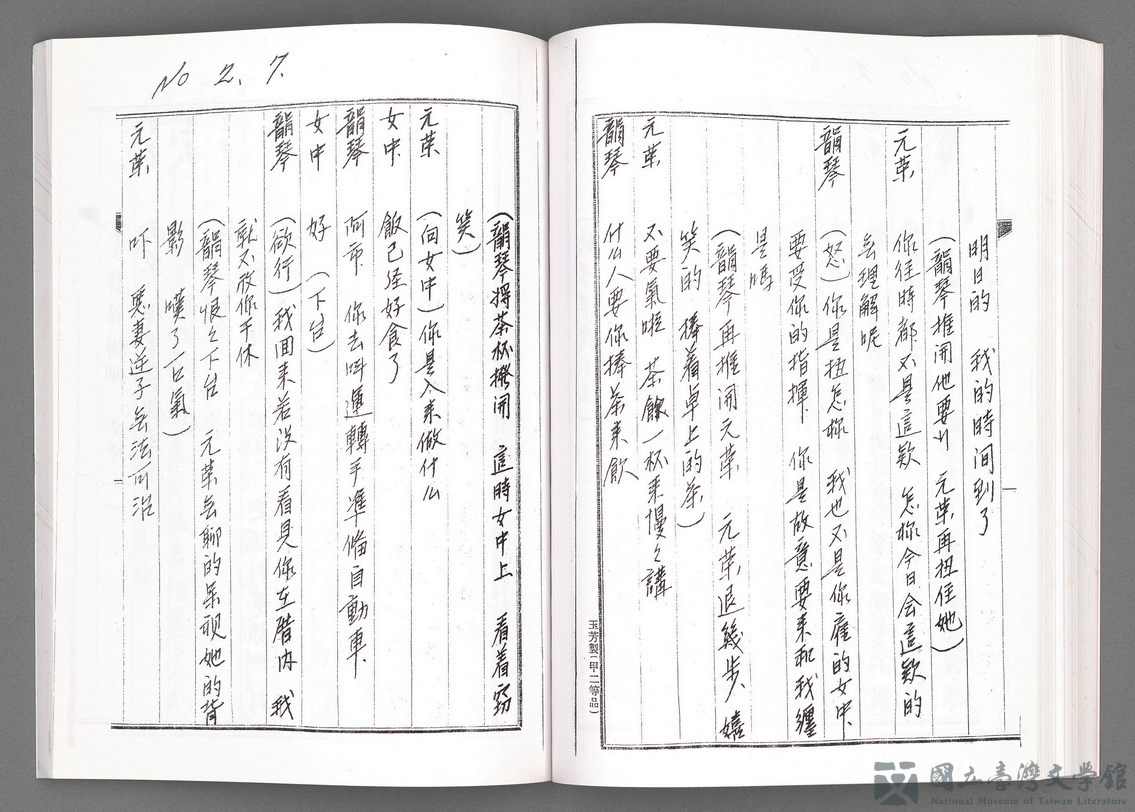 明日的 我的時间到了
(韻琴推開他要行 元葉再扭住她)
元葉 你往時都不是這欵 怎妳今日会這欵的
去理解呢
韻琴 (怒)你是扭怎妳 我也不是你雇的女中
要受你的指揮 你是故意要来和我纏
是嗎
(韻琴再推開元葉 元葉退幾步 嬉
笑的 捧着卓上的茶)
元葉 不要氣啦 茶飲一杯来慢々講
韻琴 什么人要你捧茶来飲
玉芳製(甲二等品)
No 2.7.
(韻琴将茶杯撥開 這時女中上 看着窃
笑)
元葉 (向女中)你是入来做什么
女中 飯已经好食了
韻琴 阿市 你去叫運轉手準備自動車
女中 好 (下台)
韻琴 (欲行)我回来若没有看見你在厝内 我
就不放你干休
(韻琴恨々下台 元葉無聊的呆視她的背
影 嘆了一口氣)
元葉 吓 惡妻逆子無法可治
國立臺灣文學館
National Museum of Taiwan Literature